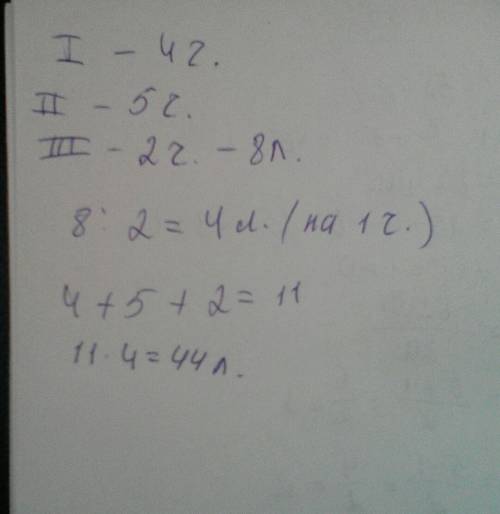 I - 4 ч.
II - 5 ч.
III - 2 ч. - 8 л.
8 : 2 = 4 л. (на 1 ч.)
4 + 5 + 2 = 11
11 · 4 = 44 л.